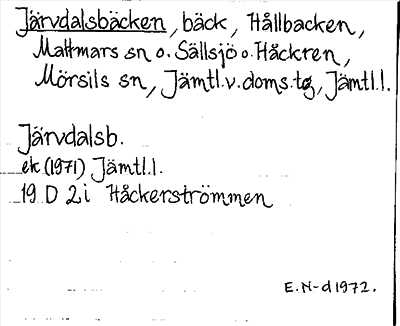 Järvdalsbäcken, bäck, Hållbacken,
Mattmars sn o. Sällsjö o. Håckren,
Mörsils sn, Jämtl.v.doms.tg, Jämtl.l.
Järvdalsb.
ek (1971) Jämtl.l.
19 D 2 i Håckerströmmen
E.N-d 1972.